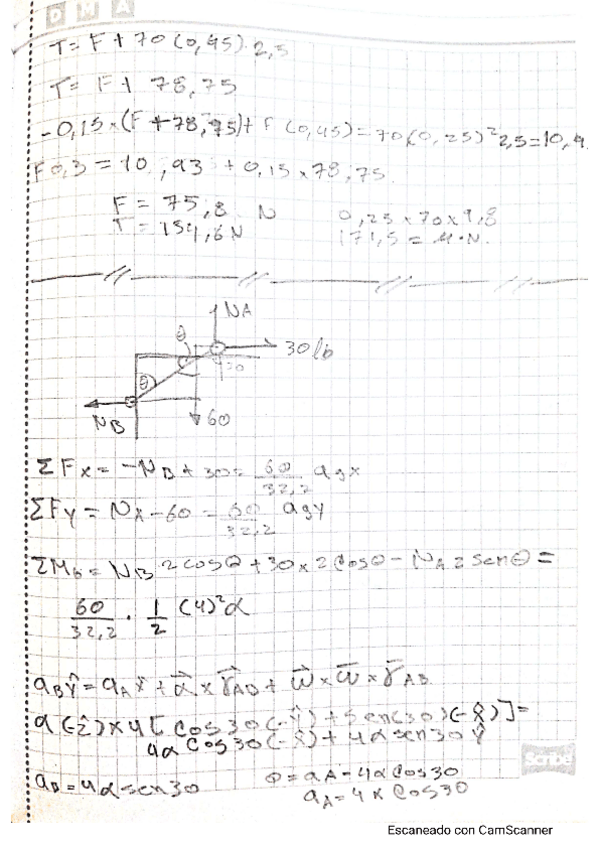 D M A
T= F + 70 (0,45) 2,5
T= F + 78,75
-0,15 x (F + 78,75) + F (0,45) = 70 (0,25)² 2,5 = 10,9
F 0,3 = 10,93 + 0,15 x 78,75
F = 75,8 N
T = 154,6 N
0,25 x 70 x 9,8
171,5 = M·N.
NA
θ
30 lb
30
θ
NB
60
ΣFx = -NB + 30 = 60/32,2 agx
ΣFy = NA - 60 = 60/32,2 agy
ΣMG = NB 2 cosθ + 30 x 2 cosθ - NA 2 senθ =
60/32,2 · 1/2 (4)² α
aB ŷ = aA x̂ + α⃗ x r⃗AB + ω⃗ x ω⃗ x r⃗AB
α (-ẑ) x 4 [cos 30 (-ŷ) + sen(30) (-x̂)] =
4α cos 30 (-x̂) + 4α sen 30 ŷ
aB = 4α sen 30
0 = aA - 4α cos 30
aA = 4 α cos 30
Scribe
Escaneado con CamScanner